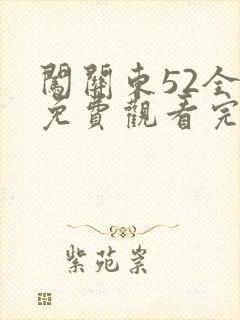 闖關東52全
免費觀看完
紫苑崇